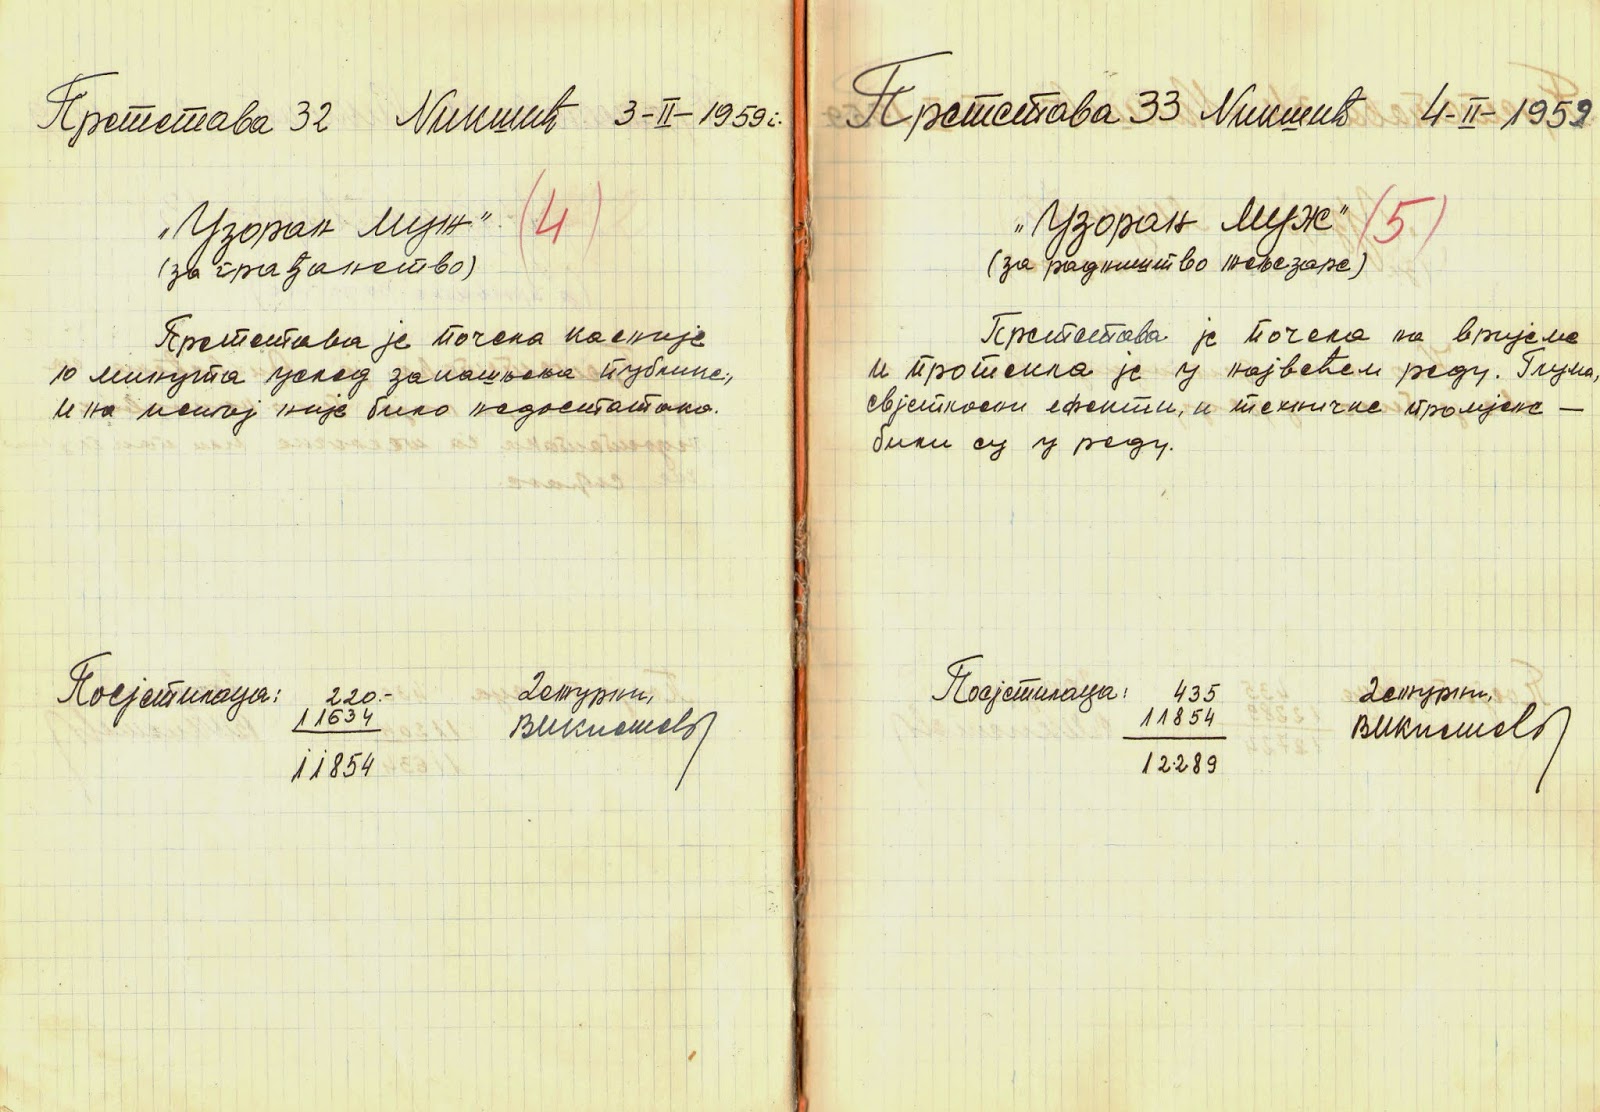 Претстава 32 Никшић 3-II-1959 г.
„Узоран муж" (4)
(за грађанство)
Претстава је почела касније
10 минута услед закашњења публике,
и на њој није било недостатака.
Посјетилаца: 220.-
11634
11854
Дежурни,
Претстава 33 Никшић 4-II-1959
„Узоран муж" (5)
(за радништво жељезаре)
Претстава је почела на вријеме
и протекла је у највећем реду. Глума,
свјетлосни ефекти, и техничке промјене —
били су у реду.
Посјетилаца: 435
11854
12289
Дежурни,